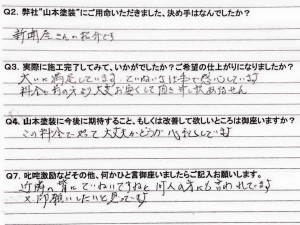 Q2. 弊社"山本塗装"にご用命いただきました、決め手はなんでしたか?
さんの紹介です
Q3. 実際に施工完了してみて、いかがでしたか?ご希望の仕上がりになりましたか?
大いに満足しています。ていねいな仕事で感心しています
料金も 大丈夫 お安くして頂き申し訳ありません
Q4. 山本塗装に今後に期待すること、もしくは改善して欲しいところは御座いますか?
この料金で 大丈夫かどうか心配しています
Q7. 叱咤激励などその他、何かひと言御座いましたらご記入お願いします。
近隣の皆にていねいですねと何人の方にも言われています
又お願いしたいと思っています